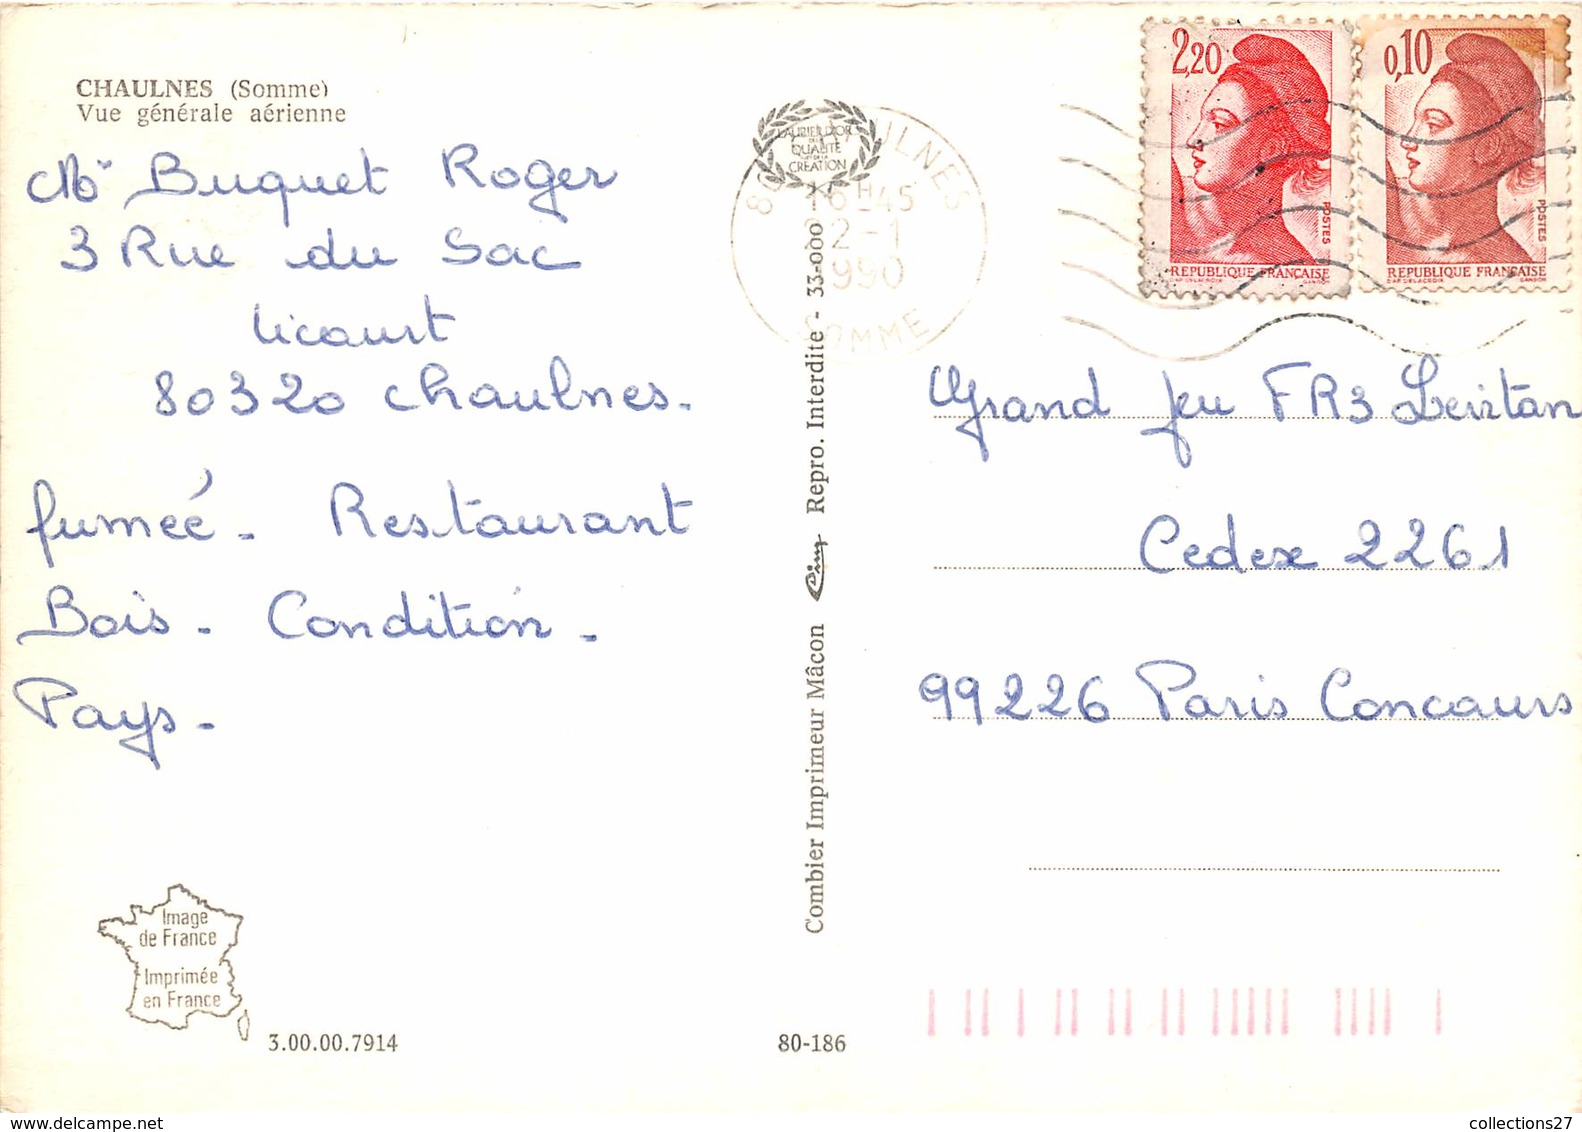 CHAULNES (Somme)
Vue générale aérienne
Mr Buquet Roger
3 Rue du Sac
Licourt
80320 Chaulnes.
fumeé - Restaurant
Bois - Condition -
Pays -
Image
de France
Imprimée
en France
3.00.00.7914
80-186
Combier Imprimeur Mâcon Cim Repro. Interdite - 33-000
LAURIER D'OR
DE LA
QUALITÉ
ET DE LA
CRÉATION
80 CHAULNES
16H45
22-1
1990
SOMME
2,20
POSTES
REPUBLIQUE FRANÇAISE
D'AP. DELACROIX GANDON
0,10
POSTES
REPUBLIQUE FRANÇAISE
D'AP. DELACROIX GANDON
Grand jeu FR3 Levitan
Cedex 2261
99226 Paris Concours
collections27